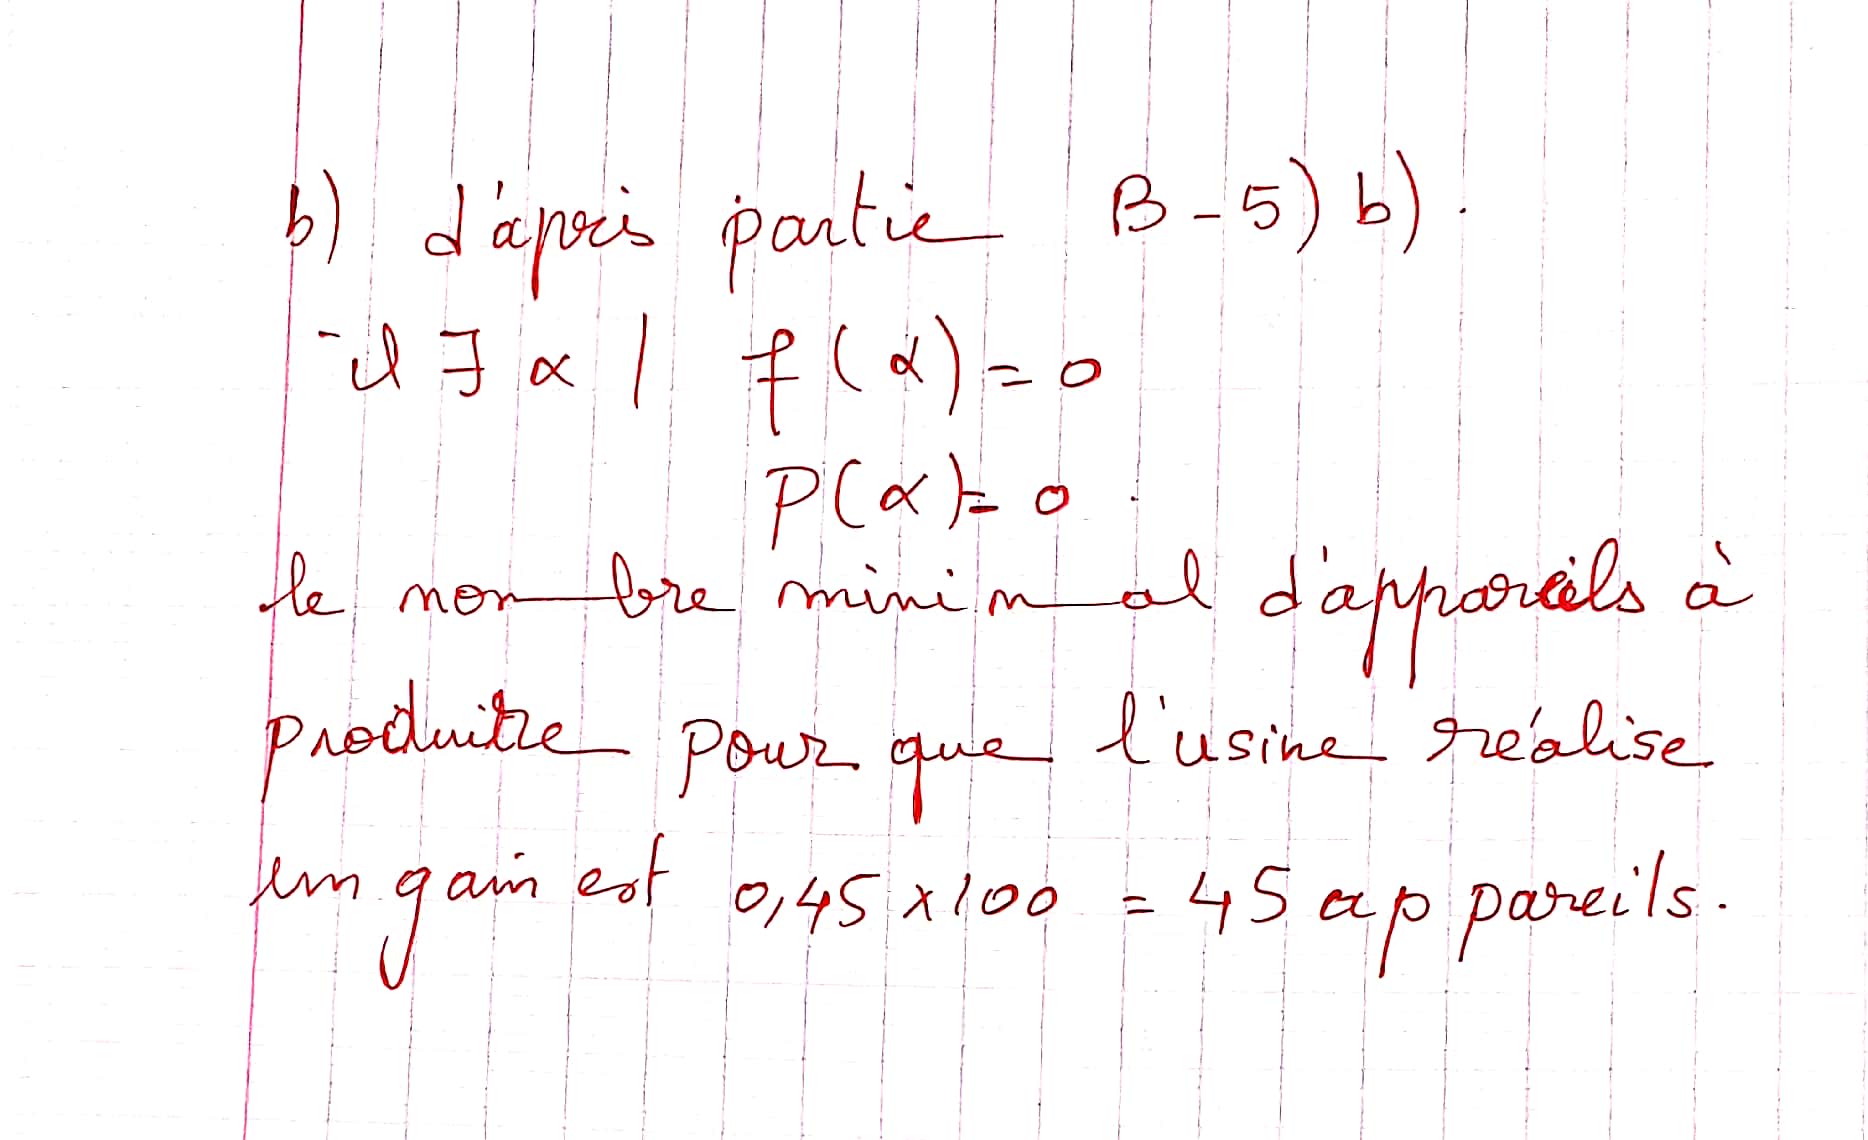 b) d'après partie B-5) b).
il ∃ α / f(α) = 0
P(α) = 0.
le nombre minimal d'appareils à
produire pour que l'usine réalise
un gain est 0,45 x 100 = 45 appareils.